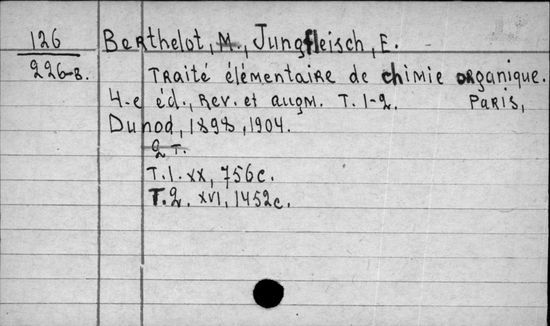 126
226-8.
Berthelot, M., Jungfleisch, E.
Traité élémentaire de chimie organique.
4-e éd., Rev. et augm. T. 1-2. Paris,
Dunod, 1898, 1904.
2 T.
T. 1. XX, 756c.
T. 2. XVI, 1452c.